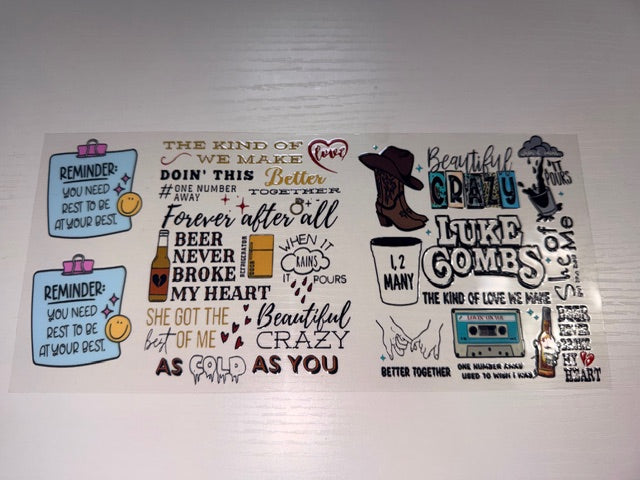 REMINDER:
YOU NEED
REST TO BE
AT YOUR BEST.
REMINDER:
YOU NEED
REST TO BE
AT YOUR BEST.
THE KIND OF
love
WE MAKE
DOIN' THIS
Better
TOGETHER
#ONE NUMBER
AWAY
Forever after all
BEER
NEVER
BROKE
MY HEART
REFRIGERATOR
DOOR
WHEN IT
RAINS
IT POURS
SHE GOT THE
best OF ME
Beautiful
CRAZY
AS COLD AS YOU
Beautiful
CRAZY
IT
POURS
LUKE
COMBS
1, 2
MANY
She Got
the best of
Me
THE KIND OF LOVE WE MAKE
LOVIN' ON YOU
BETTER TOGETHER
ONE NUMBER AWAY
USED TO WISH I WAS
BEER
NEVER
BROKE
MY
HEART